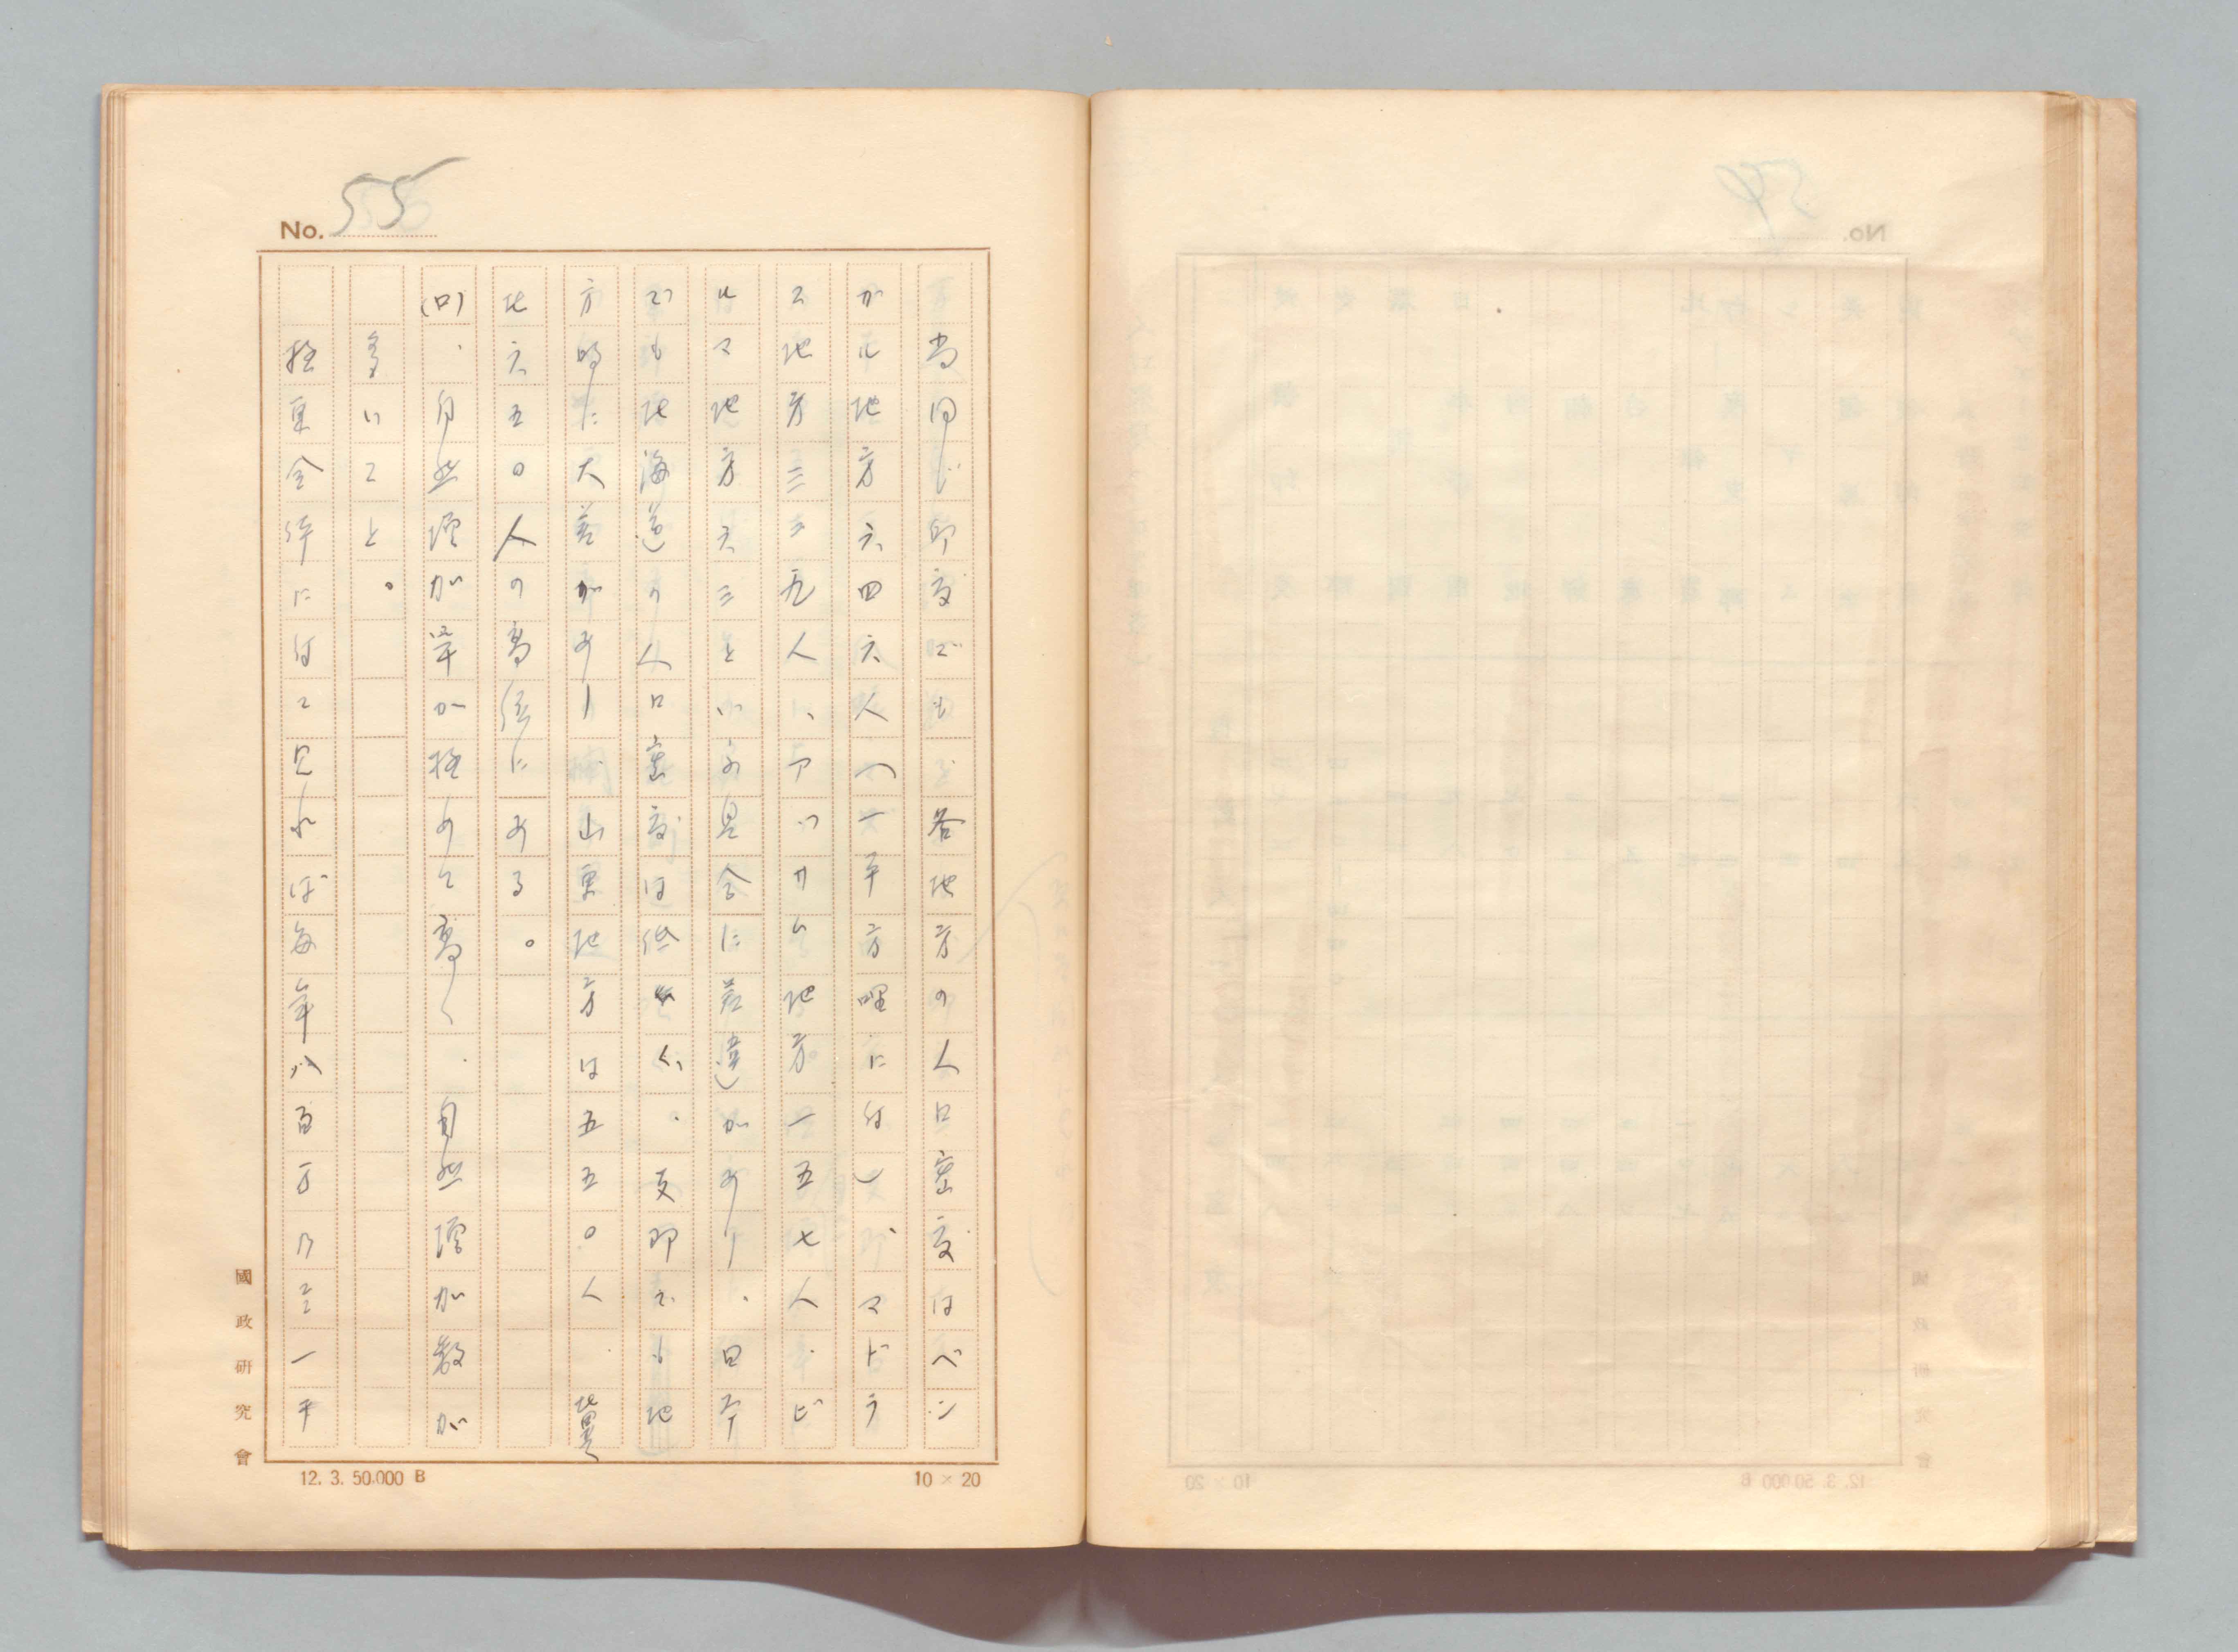 No. 55
尚同じ印度でも各地方の人口密度はベン
ガル地方六四六人(一平方哩に付し)マドラ
ス地方三三九人、アッサム地方一五七人、ビ
ルマ地方六三といふ具合に差違があり、日本
でも北海道の人口密度は低く、支那でも地
方的に大差があり 山東地方は五五〇人、冀
北六五〇人の高位にある。
(ロ)、自然増加率が極めて高く、自然増加数が
多いこと。
極東全体に付て見れば毎年八百万乃至一千
國政研究會
12. 3. 50.000 B
10 × 20